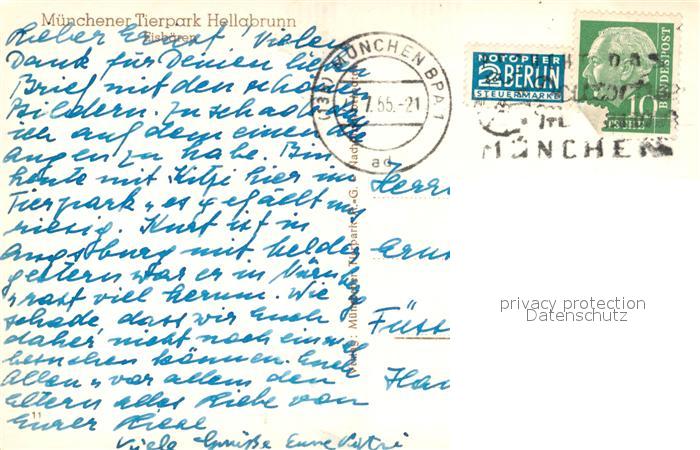 Münchener Tierpark Hellabrunn
Eisbären
Lieber Ernst! Vielen
Dank für Deinen lieben
Brief mit den schönen
Bildern. Zu schade
ich auf dem einen die
Augen zu habe. Bin
heute mit Kitzi hier im
Tierpark, es gefällt uns
riesig. Kurt ist in
Augsburg mit
gestern war er in Nürnbg
rast viel herum. Wie
schade dass wir Euch
daher nicht noch einmal
besuchen können. Euch
Allen, vor allem den
Eltern alles Liebe von
Eurer
Viele Grüße Eure
11
Verlag: Münchener Tierpark A.-G.
(13b) MÜNCHEN BPA 1
7.55.-21
ad
NOTOPFER
2 BERLIN
STEUERMARKE
DEUTSCHE BUNDESPOST
10
MÜNCHEN
Herrn
Ernst
Füss
Ha
privacy protection
Datenschutz